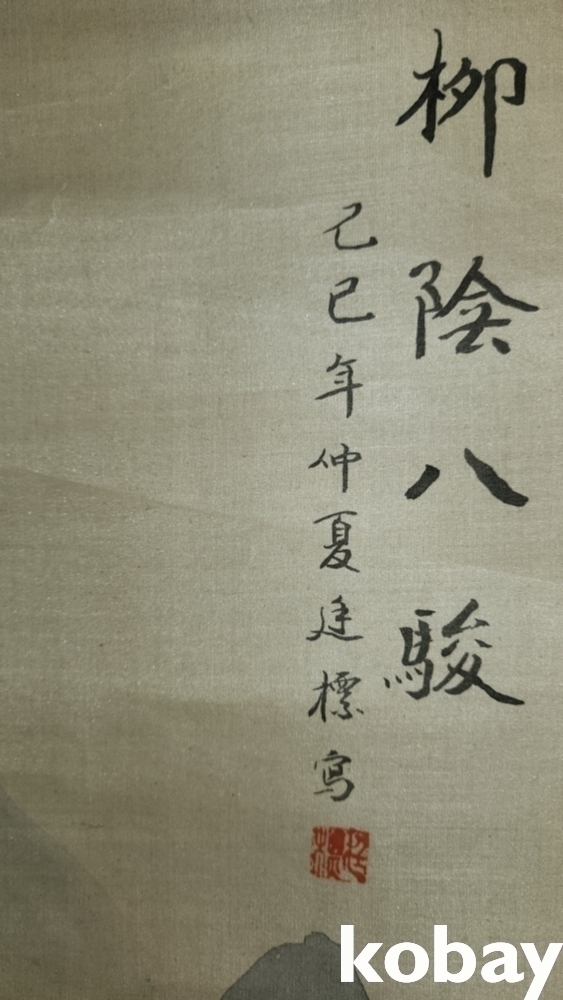 柳陰八駿
己巳年仲夏廷標寫
廷標
kobay